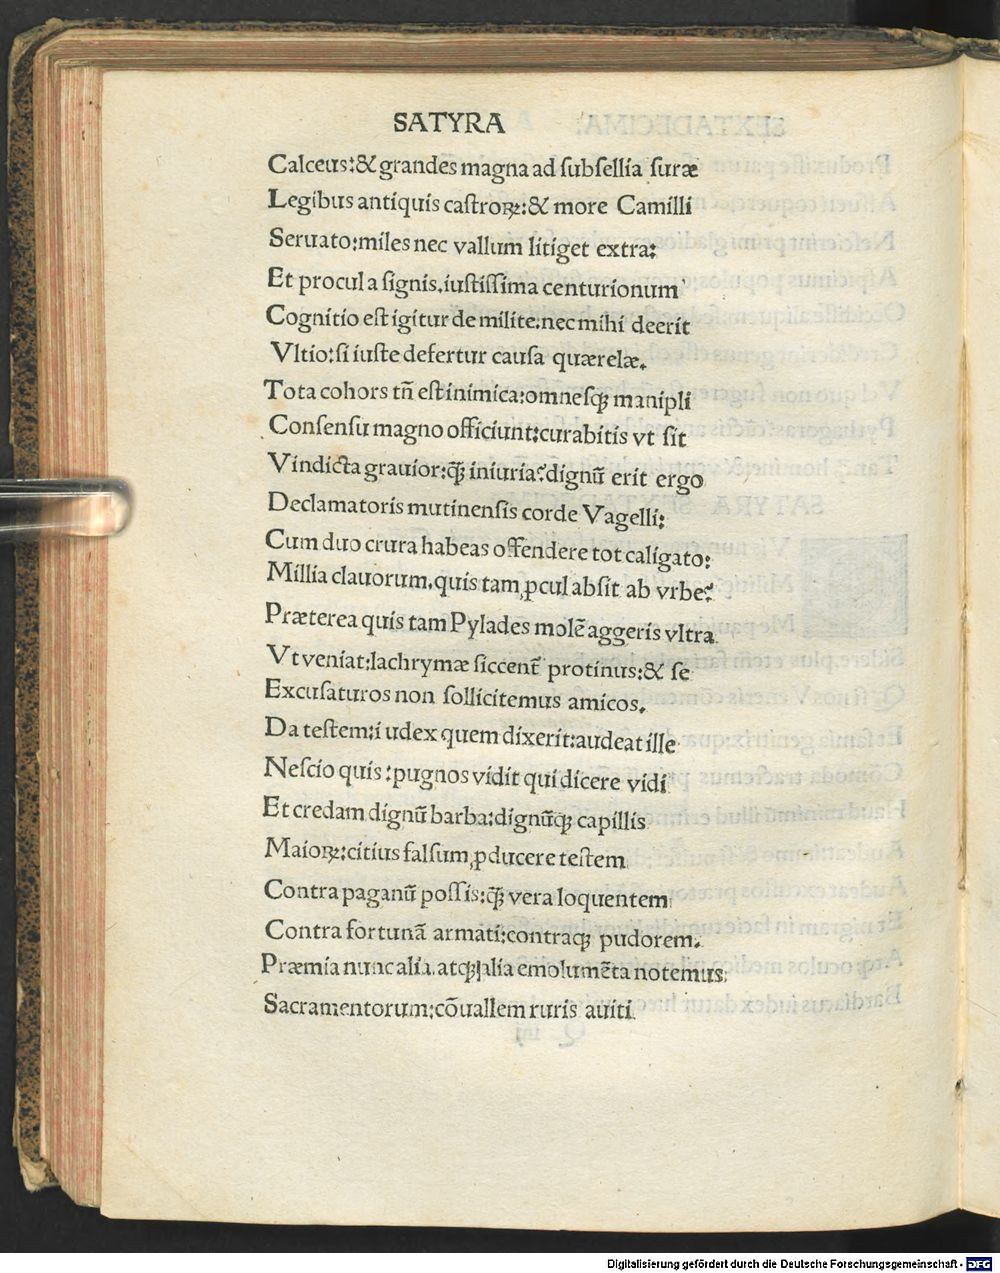 SATYRA
Calceus:& grandes magna ad subsellia suræ
Legibus antiquis castroꝝ:& more Camilli
Seruato:miles nec vallum litiget extra:
Et procul a signis.iustissima centurionum
Cognitio est igitur de milite.nec mihi deerit
Vltio:si iuste defertur causa quærelæ.
Tota cohors tñ est inimica:omnesq; manipli
Consensu magno officiunt:curabitis vt sit
Vindicta grauior:q̃; iniuria?dignũ erit ergo
Declamatoris mutinensis corde Vagelli:
Cum duo crura habeas offendere tot caligato:
Millia clauorum.quis tam ꝓcul absit ab vrbe?
Præterea quis tam Pylades molẽ aggeris vltra
Vt veniat:lachrymæ siccent̃ protinus:& se
Excusaturos non sollicitemus amicos.
Da testem:i udex quem dixerit:audeat ille
Nescio quis:pugnos vidit qui dicere vidi
Et credam dignũ barba:dignũq; capillis
Maioꝝ:citius falsum ꝓducere testem
Contra paganũ possis:q̃; vera loquentem
Contra fortunã armati:contraq; pudorem.
Præmia nunc alia.atq; alia emolumẽta notemus
Sacramentorum:cõuallem ruris auiti
Digitalisierung gefördert durch die Deutsche Forschungsgemeinschaft - DFG